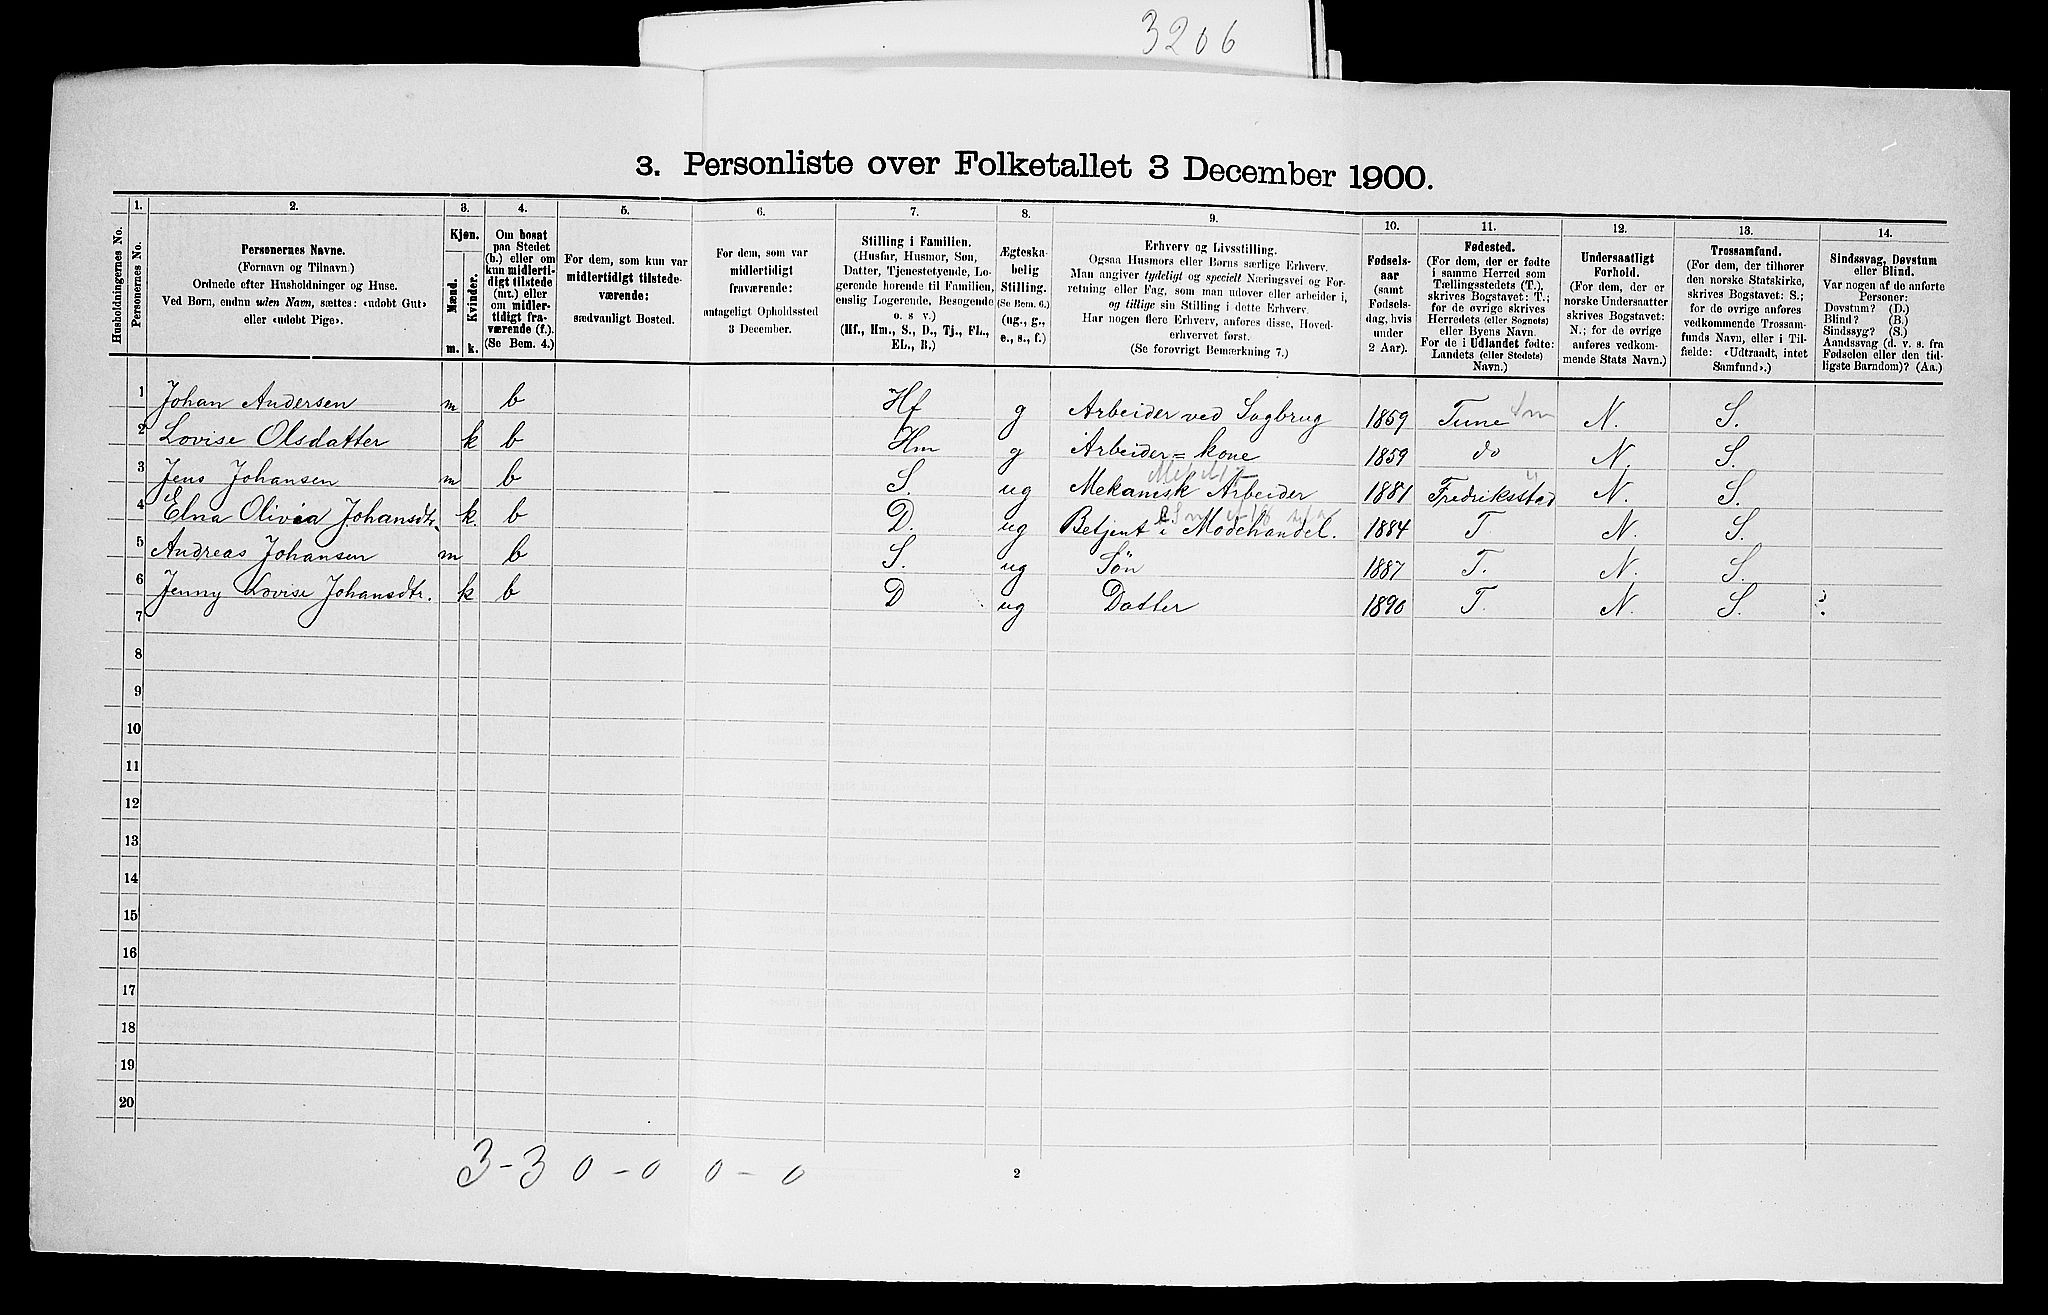 3206
3. Personliste over Folketallet 3 December 1900.
1. 2. 3. 4. 5. 6. 7. 8. 9. 10. 11. 12. 13. 14.
Husholdningernes No.
Personernes No.
Personernes Navne.
(Fornavn og Tilnavn.)
Ordnede efter Husholdninger og Huse.
Ved Børn, endnu uden Navn, sættes: «udøbt Gut»
eller «udøbt Pige».
Kjøn.
Mænd.
Kvinder.
m. k.
Om bosat
paa Stedet
(b.) eller om
kun midlerti-
digt tilstede
(mt.) eller
om midler-
tidigt fra-
værende (f.).
(Se Bem. 4.)
For dem, som kun var
midlertidigt tilstede-
værende:
sædvanligt Bosted.
For dem, som var
midlertidigt
fraværende:
antageligt Opholdssted
3 December.
Stilling i Familien.
(Husfar, Husmor, Søn,
Datter, Tjenestetyende, Lo-
gerende hørende til Familien,
enslig Logerende, Besøgende
o. s. v.)
(Hf., Hm., S., D., Tj., FL.,
EL., B.)
Ægteska-
belig
Stilling.
(Se Bem. 6.)
(ug., g.,
e., s., f.)
Erhverv og Livsstilling.
Ogsaa Husmors eller Børns særlige Erhverv.
Man angiver tydeligt og specielt Næringsvei og For-
retning eller Fag, som man udøver eller arbeider i,
og tillige sin Stilling i dette Erhverv.
Har nogen flere Erhverv, anføres disse, Hoved-
erhvervet først.
(Se forøvrigt Bemærkning 7.)
Fødsels-
aar
(samt
Fødsels-
dag, hvis
under
2 Aar).
Fødested.
(For dem, der er fødte
i samme Herred som
Tællingsstedets (T.),
skrives Bogstavet: T.;
for de øvrige skrives
Herredets (eller Sognets)
eller Byens Navn.
For de i Udlandet fødte:
Landets (eller Stedets)
Navn.)
Undersaatligt
Forhold.
(For dem, der er
norske Undersaatter
skrives Bogstavet:
N.; for de øvrige
anføres vedkom-
mende Stats Navn.)
Trossamfund.
(For dem, der tilhører
den norske Statskirke,
skrives Bogstavet: S.;
for de øvrige anføres
vedkommende Trossam-
funds Navn, eller i Til-
fælde: «Udtraadt, intet
Samfund».)
Sindssvag, Døvstum
eller Blind.
Var nogen af de anførte
Personer:
Døvstum? (D.)
Blind? (B.)
Sindssyg? (S.)
Aandssvag (d. v. s. fra
Fødselen eller den tid-
ligste Barndom)? (Aa.)
1 Johan Andersen m b Hf g Arbeider ved Sagbrug 1859 Tune N. S.
2 Lovise Olsdatter k b Hm g Arbeider = kone 1859 do N. S.
3 Jens Johansen m b S. ug Mekanisk Arbeider 1881 Fredriksstad N. S.
4 Elna Olivia Johansdtr. k. b D. ug Betjent i Modehandel. 1884 T N. S.
5 Andreas Johansen m b S. ug Søn 1887 T. N. S.
6 Jenny Lovise Johansdtr. k b D ug Datter 1890 T. N. S.
7
8
9
10
11
12
13
14
15
16
17
18
19
20
3 - 3 0 - 0 0 - 0
2